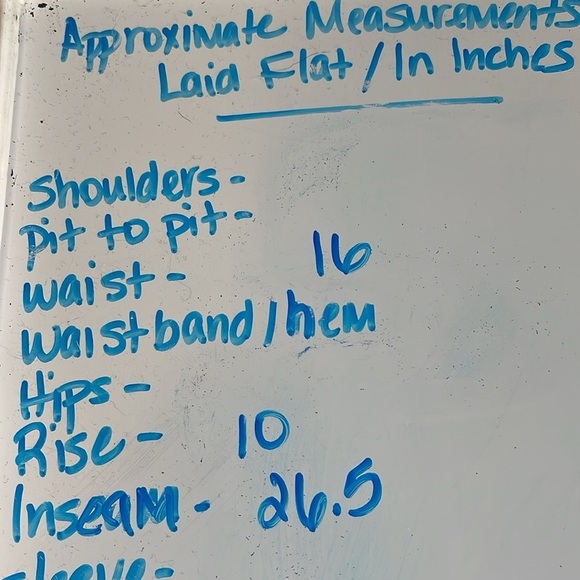 Approximate Measurements
Laid Flat / In Inches
Shoulders -
Pit to pit -
waist - 16
Waistband / hem
Hips -
Rise - 10
Inseam - 26.5
sleeve -